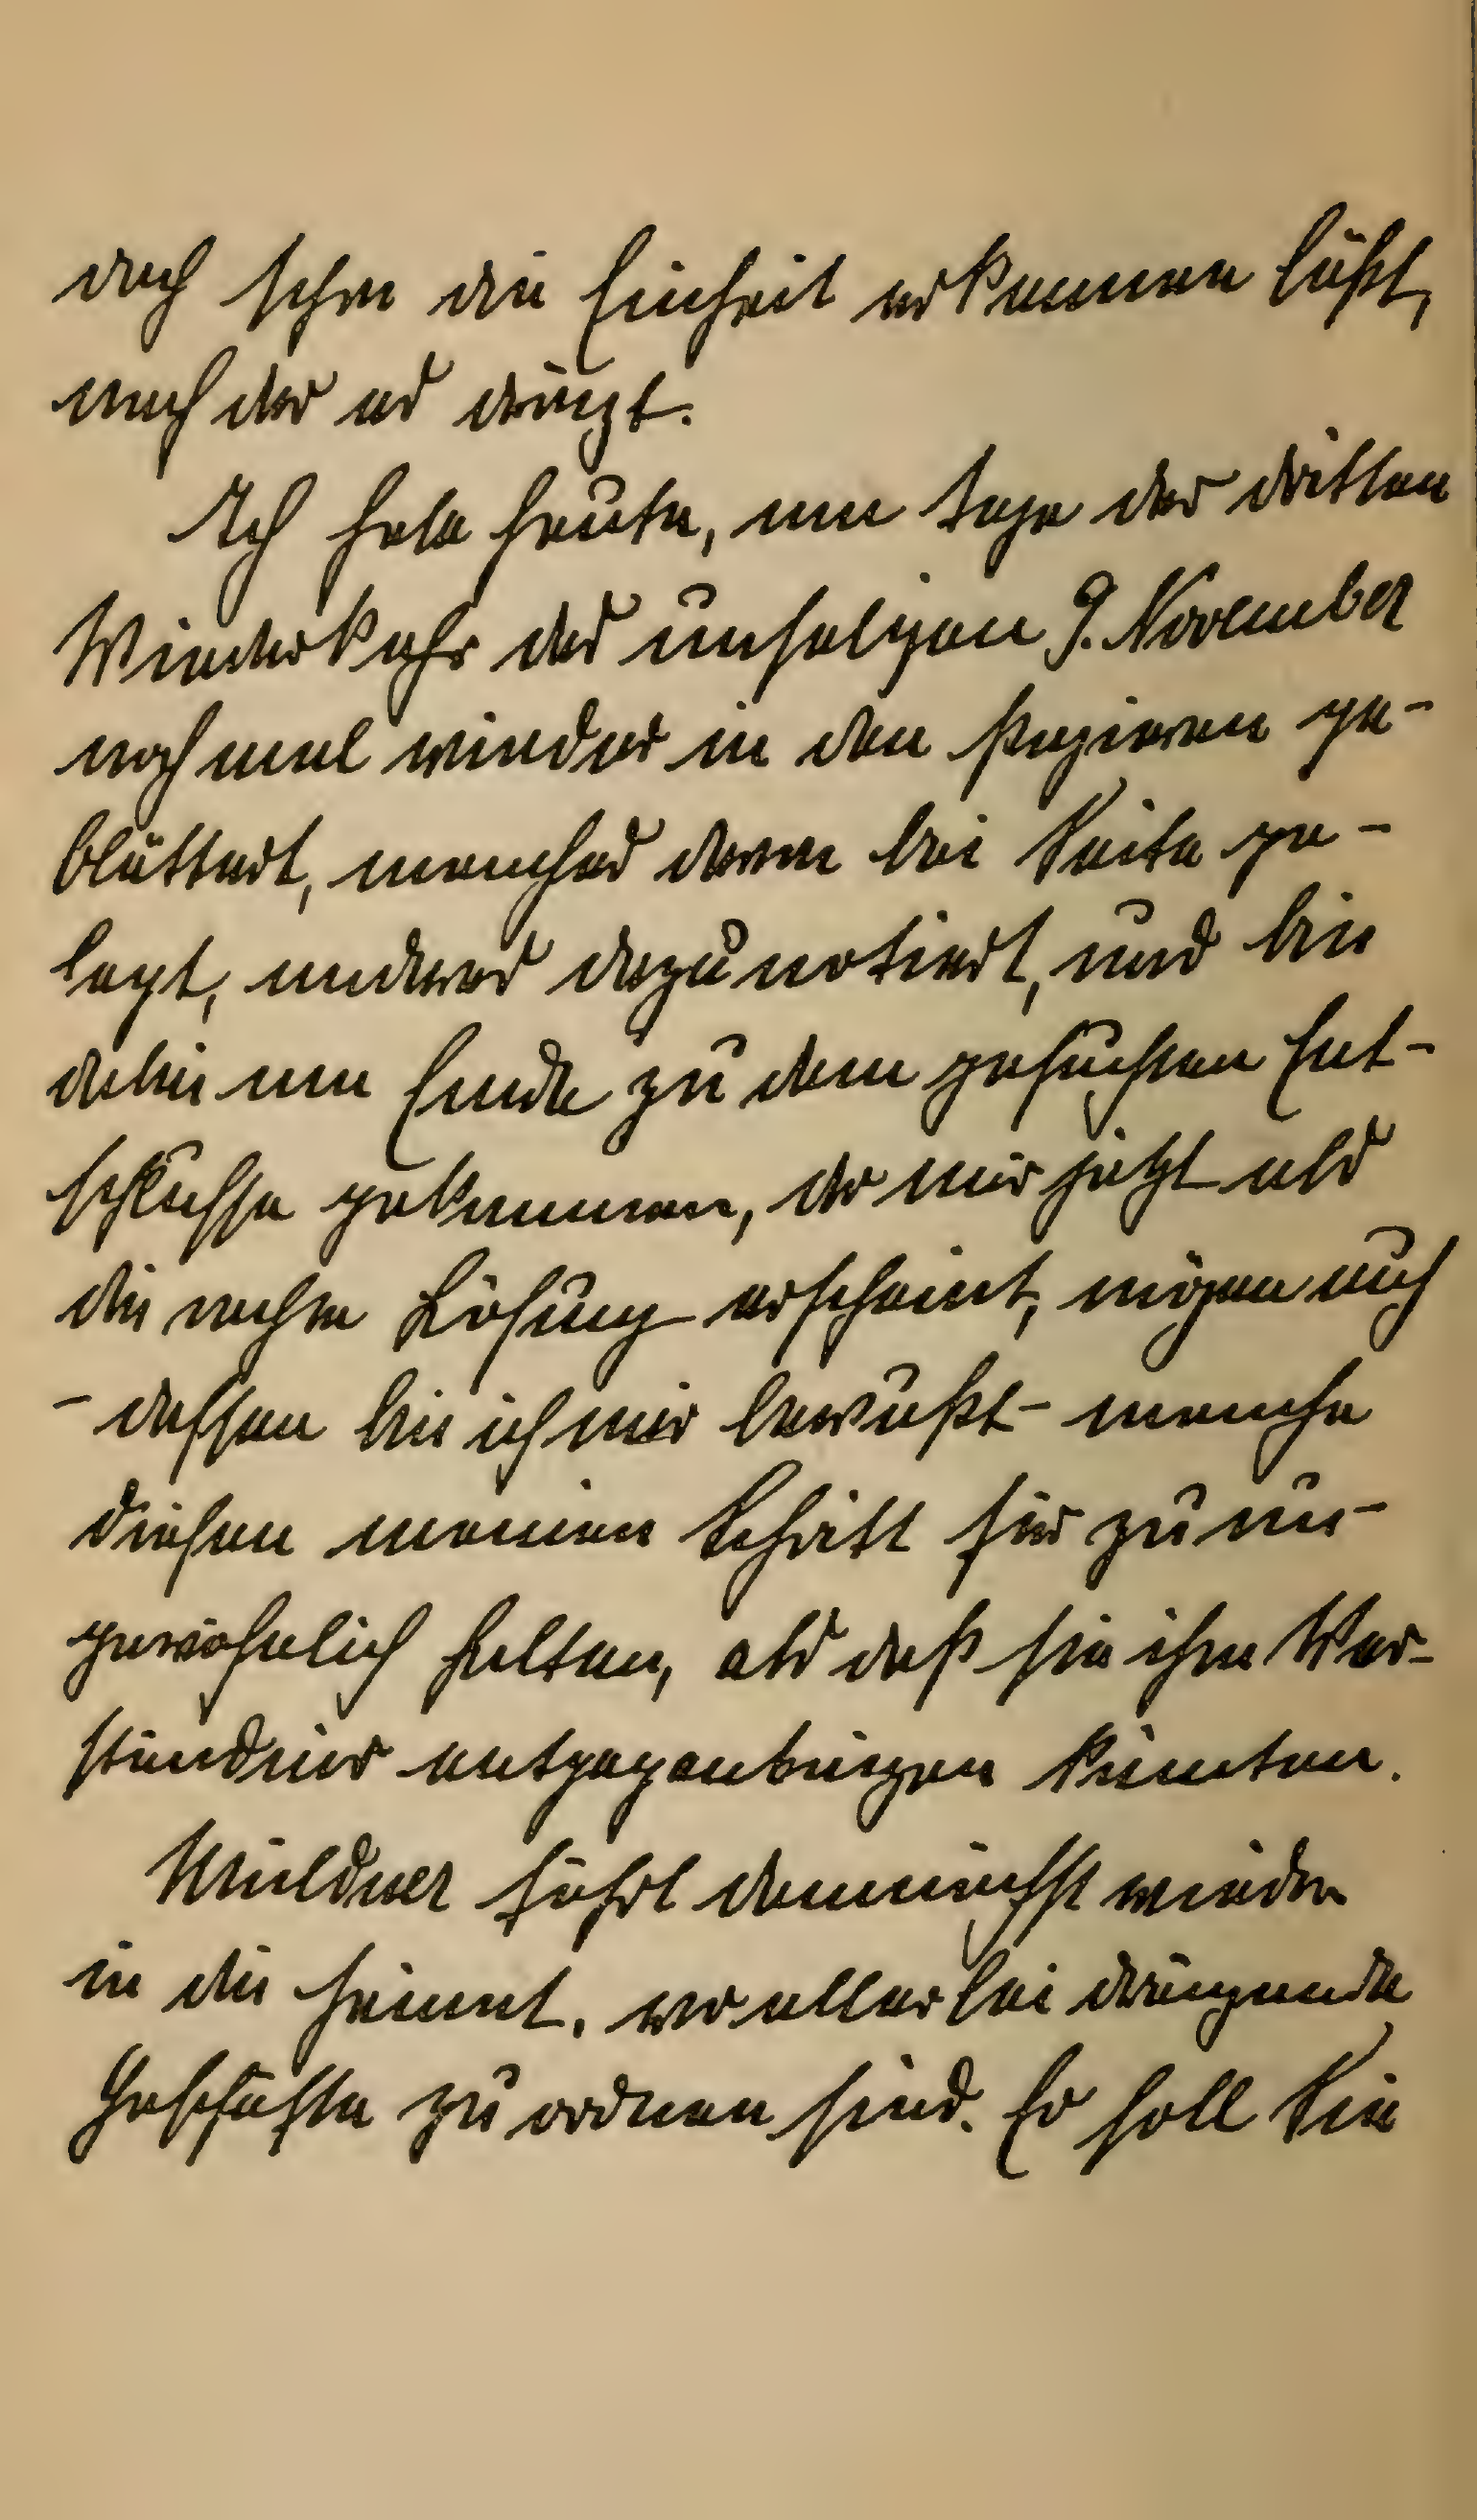 doch schon die Einheit erkennen läßt,
nach der es drängt.
Ich habe heute, am Tage der dritten
Wiederkehr des unseligen 9. November
noch mal wieder in den Papieren ge-
blättert, manches davon bei Seite ge-
legt, anderes dazu notiert, und bin
dabei am Ende zu dem gesuchten Ent-
schlusse gekommen, der mir jetzt als
die rechte Lösung erscheint, mögen auch
- dessen bin ich mir bewußt - manche
diesen meinen Schritt für zu un-
gewöhnlich halten, als daß sie ihm Ver-
ständnis entgegenbringen könnten.
Müldner fährt demnächst wieder
in die Heimat, wo allerlei drängende
Geschäfte zu ordnen sind. Er soll Sie